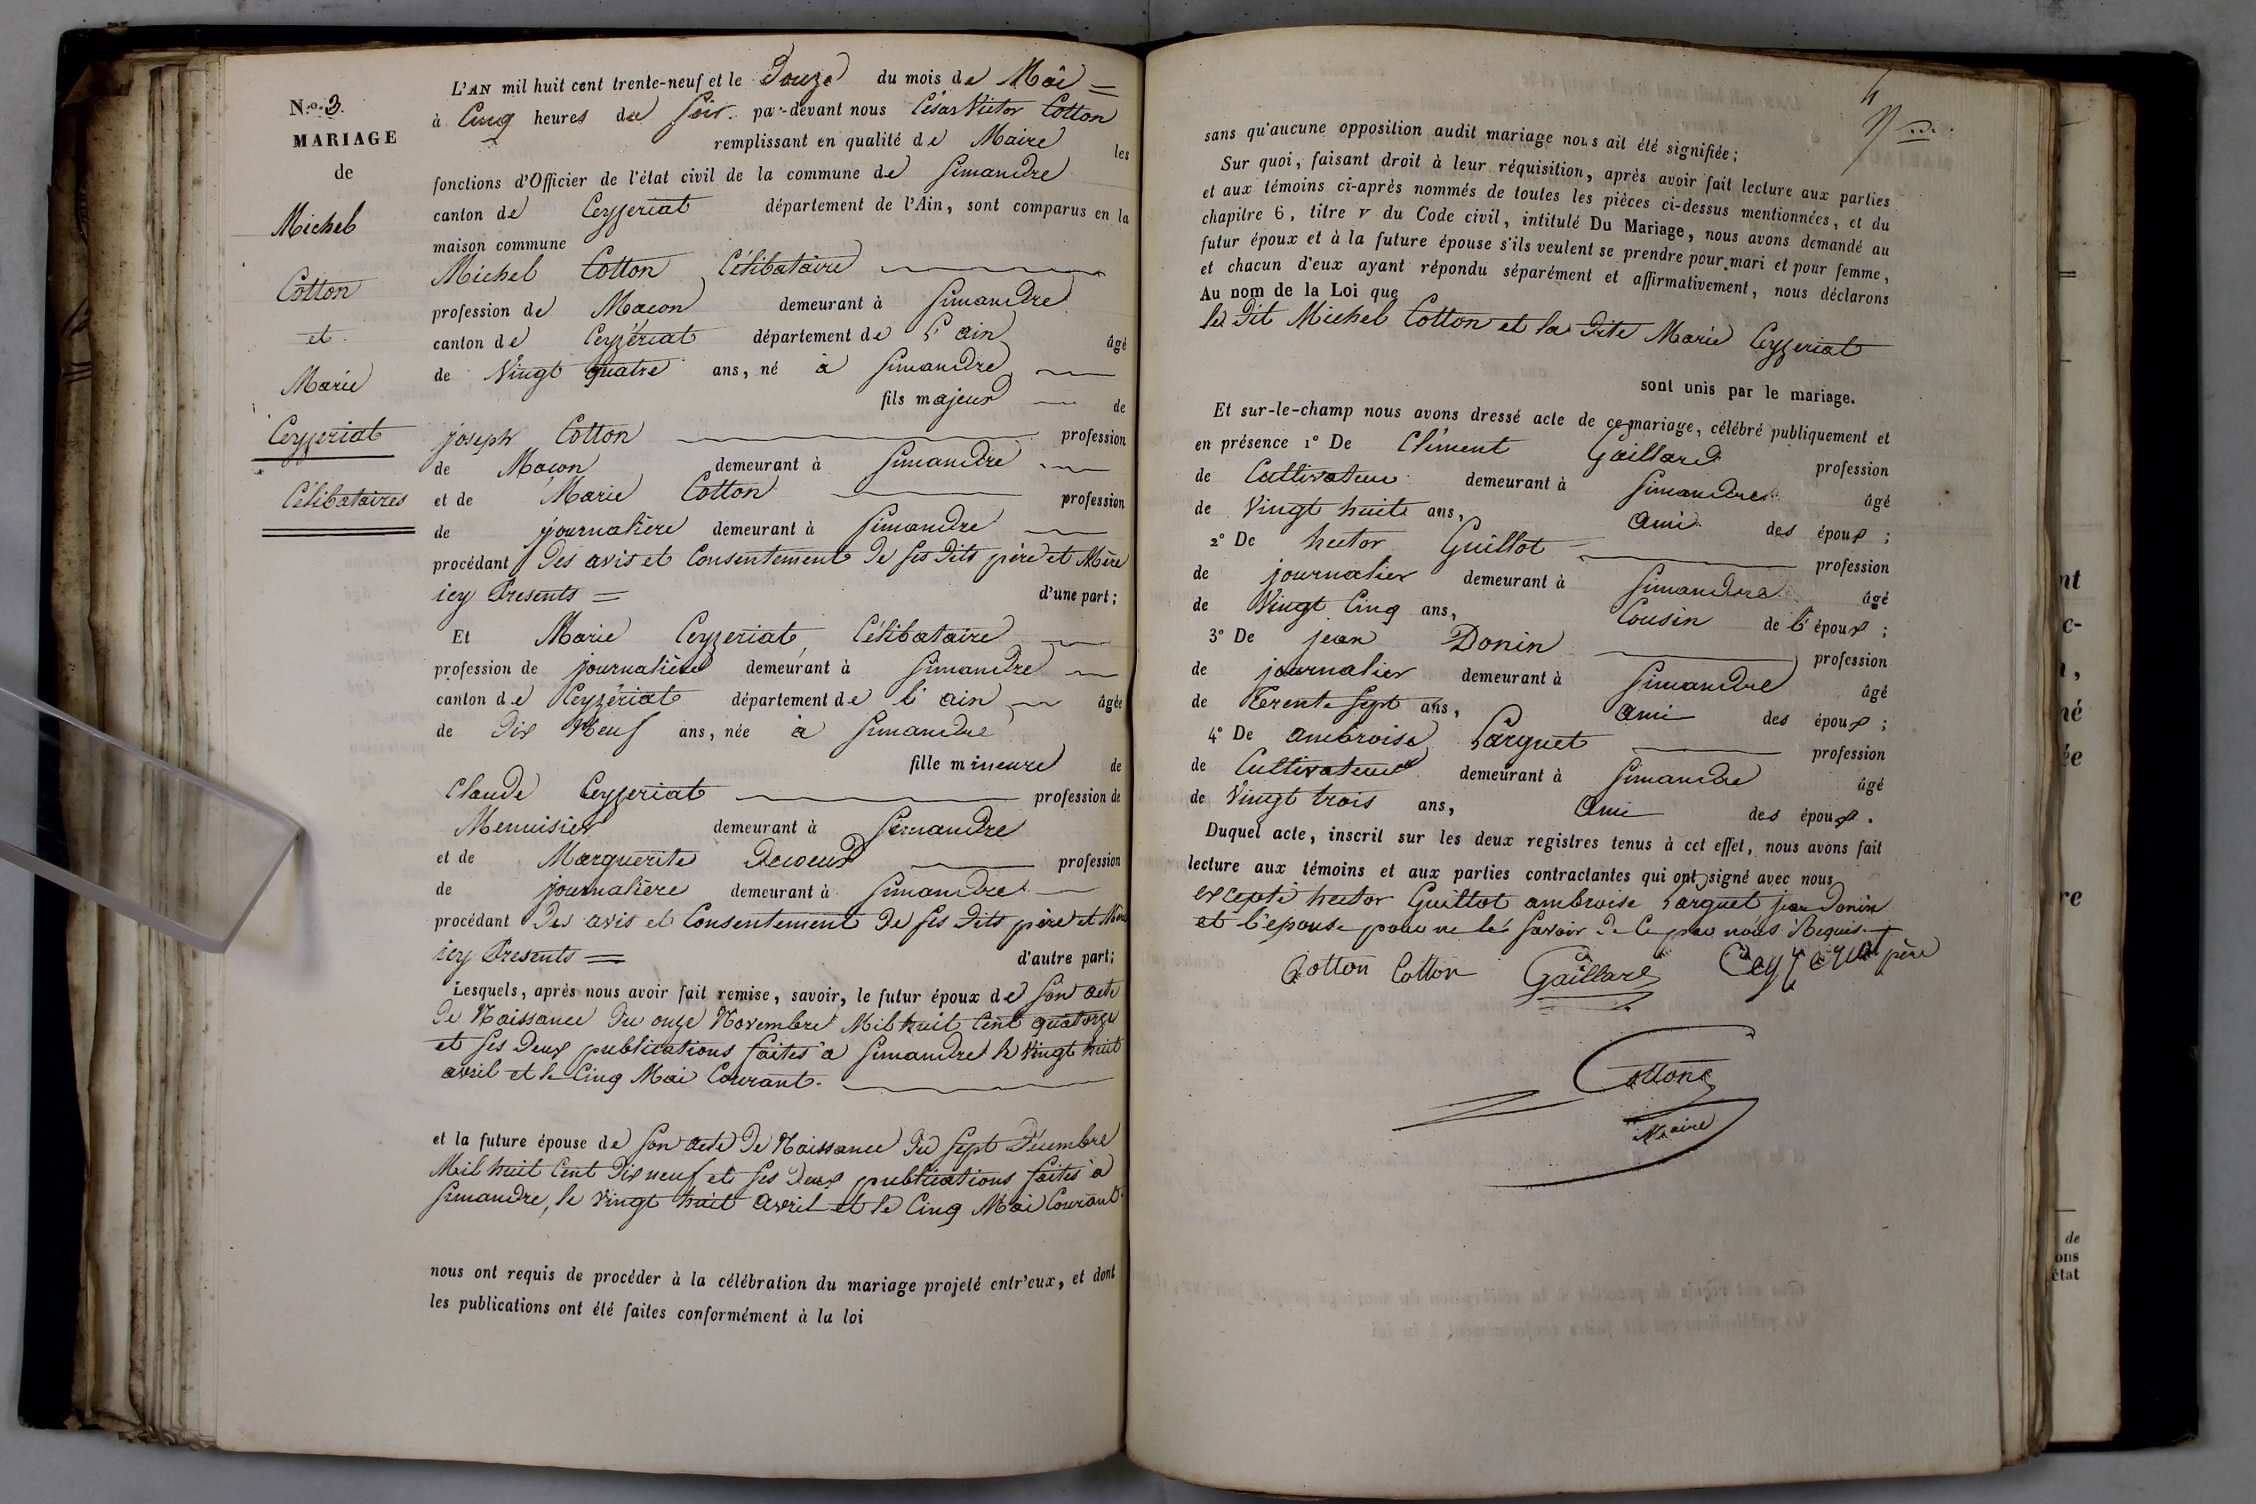 N.o 3.
MARIAGE
de
Michel
Cotton
et
Marie
Ceyzeriat
Célibataires
L'AN mil huit cent trente-neuf et le Douze du mois de Mai =
à Cinq heures du Soir par-devant nous César Victor Cotton
remplissant en qualité de Maire les
fonctions d'Officier de l'état civil de la commune de Simandre
canton de Ceyzeriat département de l'Ain, sont comparus en la
maison commune
Michel Cotton Célibataire
profession de Macon demeurant à Simandre
canton de Ceyzériat département de L'ain âgé
de Vingt quatre ans, né à Simandre
fils majeur de
joseph Cotton profession
de Macon demeurant à Simandre
et de Marie Cotton profession
de journalière demeurant à Simandre
procédant Des avis et Consentement De ses Dits père et Mère
icy Presents = d'une part;
Et Marie Ceyzeriat, Célibataire
profession de journalière demeurant à Simandre
canton de Ceyzériat département de l'ain âgée
de Dix Neuf ans, née à Simandre
fille mineure de
Claude Ceyzeriat profession de
Menuisier demeurant à Simandre
et de Marguerite Decoeur profession
de journalière demeurant à Simandre
procédant Des avis et Consentement De ses Dits père et Mère
icy Presents = d'autre part;
Lesquels, après nous avoir fait remise, savoir, le futur époux de Son acte
De Naissance Du onze Novembre Mil huit Cent quatorze
et ses Deux publications faites a Simandre le Vingt huit
avril et le Cinq Mai Courant.
et la future épouse de Son acte De Naissance Du Sept Décembre
Mil huit Cent Dix neuf et ses Deux publications faites à
Simandre, le Vingt huit avril et le Cinq Mai Courant.
nous ont requis de procéder à la célébration du mariage projeté entr'eux, et dont
les publications ont été faites conformément à la loi
4
sans qu'aucune opposition audit mariage nous ait été signifiée;
Sur quoi, faisant droit à leur réquisition, après avoir fait lecture aux parties
et aux témoins ci-après nommés de toutes les pièces ci-dessus mentionnées, et du
chapitre 6, titre V du Code civil, intitulé Du Mariage, nous avons demandé au
futur époux et à la future épouse s'ils veulent se prendre pour mari et pour femme,
et chacun d'eux ayant répondu séparément et affirmativement, nous déclarons
Au nom de la Loi que
le Dit Michel Cotton et la Dite Marie Ceyzeriat
sont unis par le mariage.
Et sur-le-champ nous avons dressé acte de ce mariage, célébré publiquement et
en présence 1° De Clément Gaillard profession
de Cultivateur demeurant à Simandre âgé
de Vingt huite ans, ami des époux;
2° De hector Guillot profession
de journalier demeurant à Simandre âgé
de Vingt Cinq ans, Cousin de l'époux;
3° De jean Donin profession
de journalier demeurant à Simandre âgé
de Terente Sept ans, ami des époux;
4° De ambroise Larguet profession
de Cultivateur demeurant à Simandre âgé
de Vingt trois ans, ami des époux.
Duquel acte, inscrit sur les deux registres tenus à cet effet, nous avons fait
lecture aux témoins et aux parties contractantes qui ont signé avec nous
excepté hector Guillot ambroise Larguet jean Donin
et l'epouse pour ne le Savoir De Ce par nous Requis.
Cotton Cotton Gaillard Ceyzeriat père
Cotton
Maire
nt
re
de
ons
état